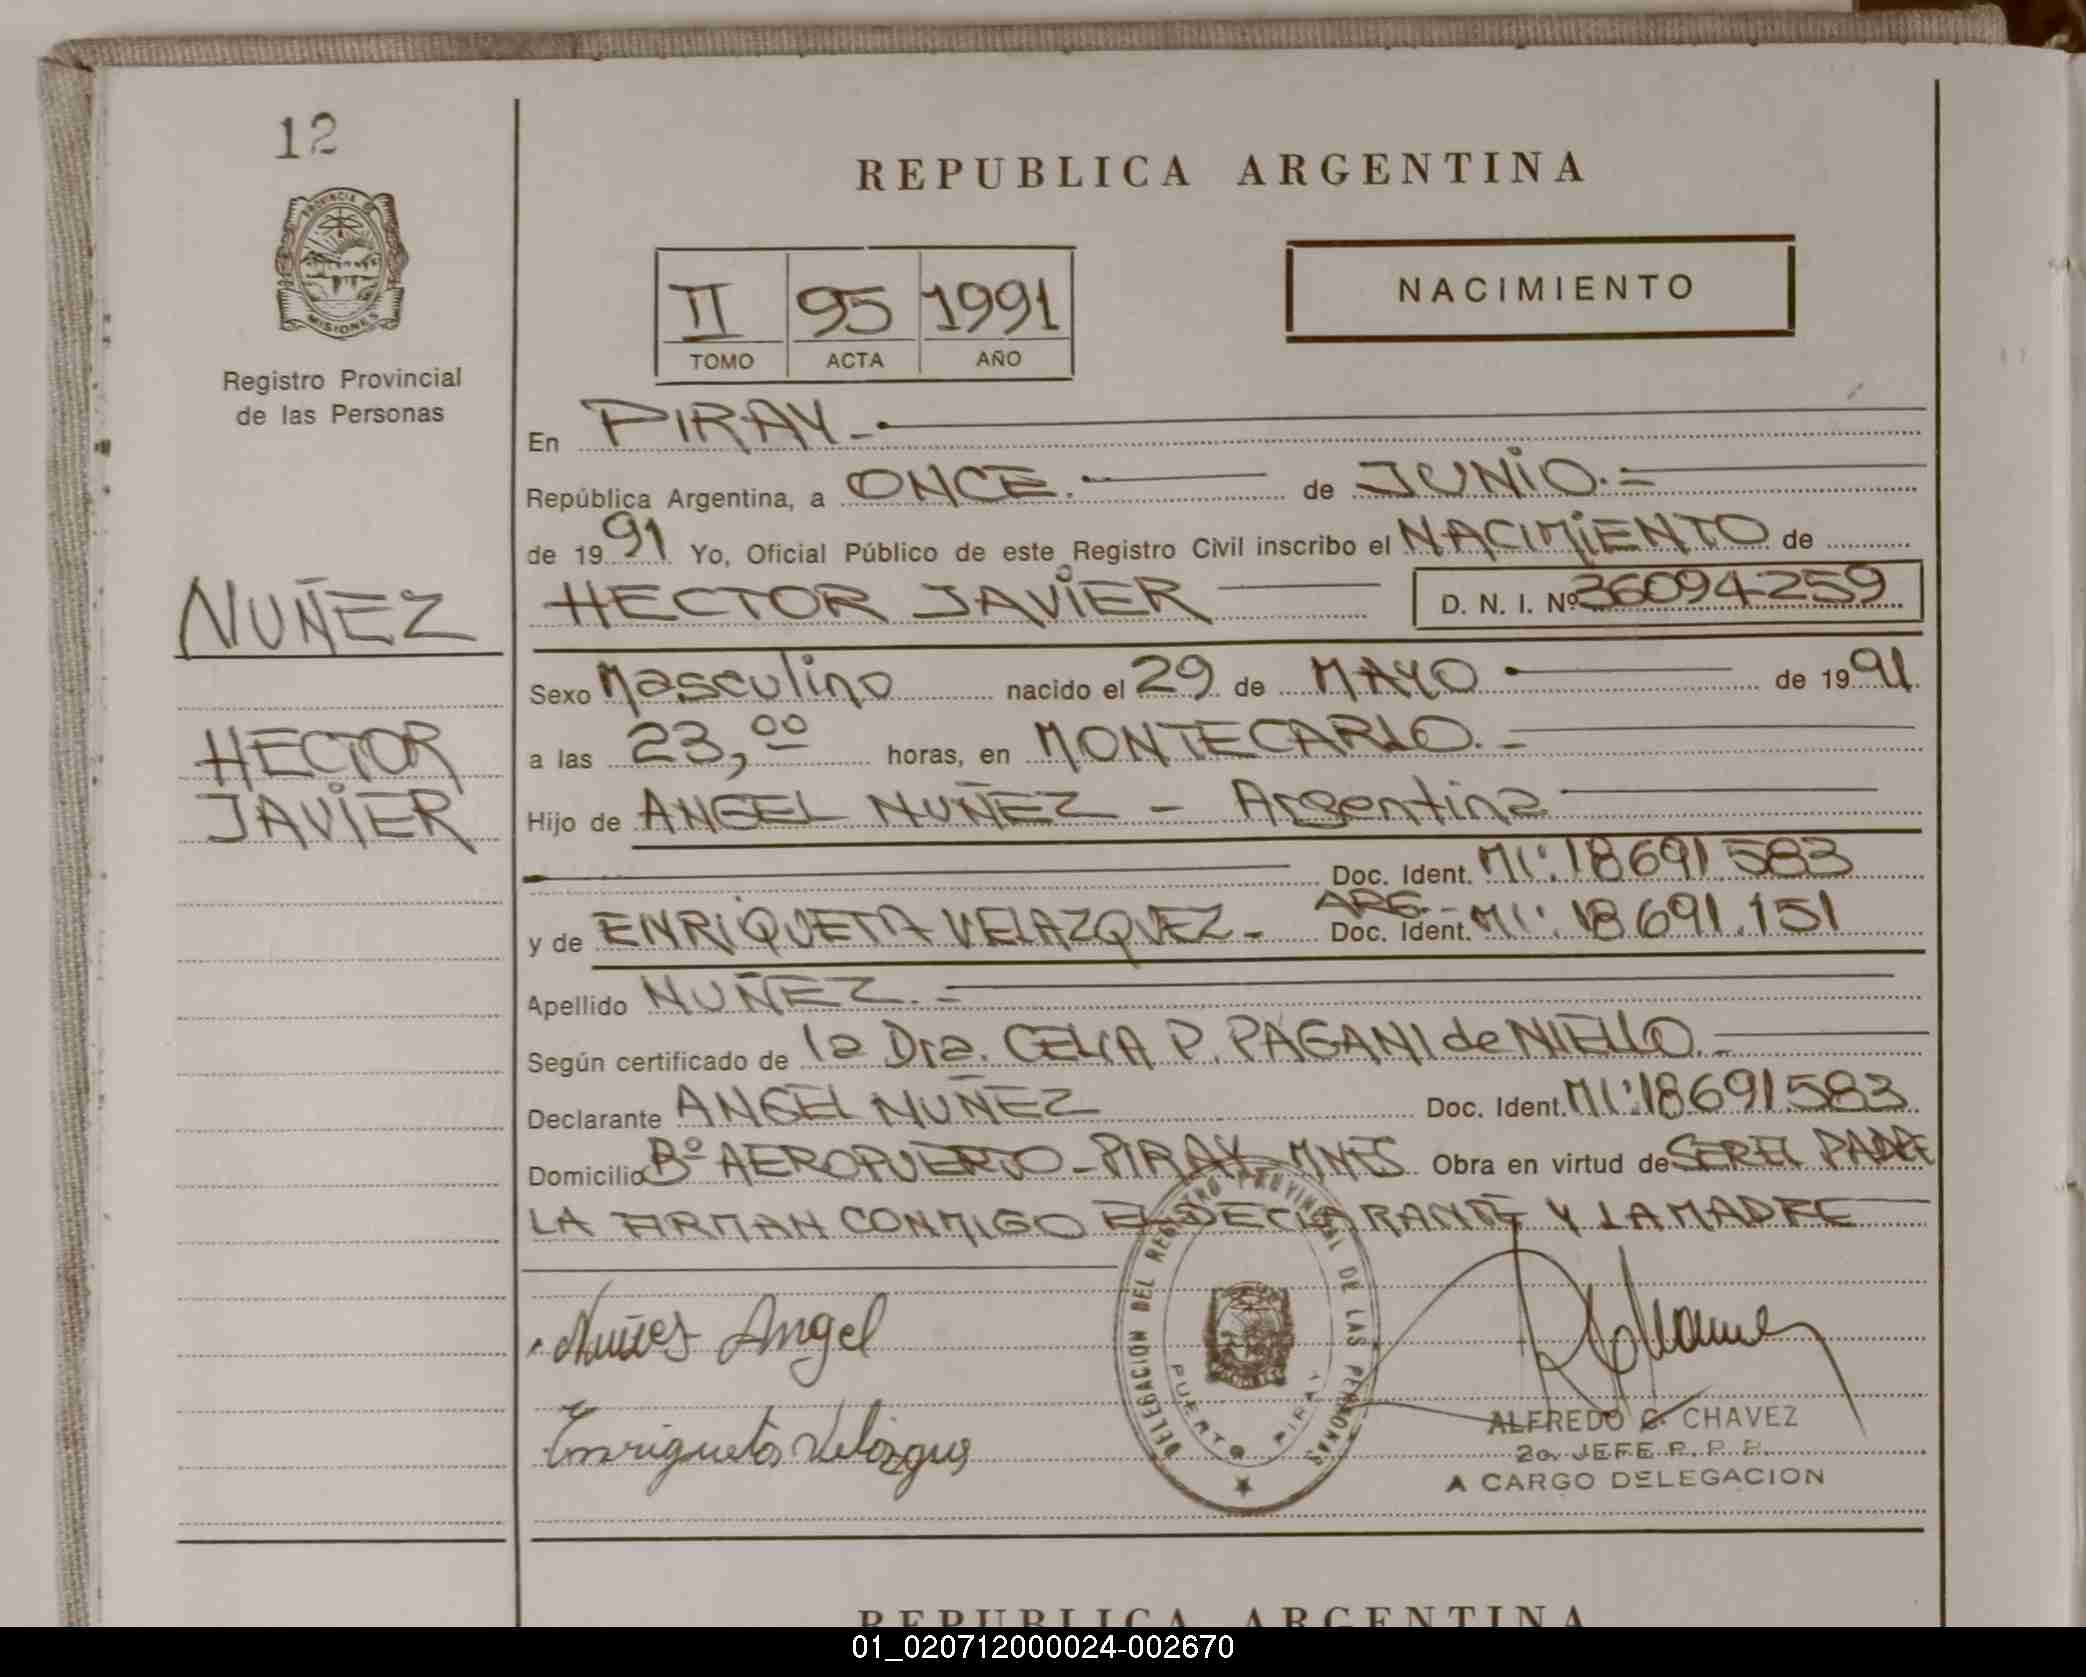 12
PROVINCIA DE
MISIONES
Registro Provincial
de las Personas
NUÑEZ
HECTOR
JAVIER
REPUBLICA ARGENTINA
NACIMIENTO
II 95 1991
TOMO ACTA AÑO
En PIRAY.-
República Argentina, a ONCE.- de JUNIO.=
de 1991 Yo, Oficial Público de este Registro Civil inscribo el NACIMIENTO de
HECTOR JAVIER D. N. I. Nº 36094259
Sexo Masculino nacido el 29 de MAYO de 1991.
a las 23,00 horas, en MONTECARLO.-
Hijo de ANGEL NUÑEZ - Argentina
Doc. Ident. MI: 18691.583
ARG.-
y de ENRIQUETA VELAZQUEZ- Doc. Ident. MI: 18691.151
Apellido NUÑEZ.=
Según certificado de la Dra. CELIA P. PAGANI de NIELLO.-
Declarante ANGEL NUÑEZ Doc. Ident. MI: 18691.583
Domicilio Bº AEROPUERTO-PIRAY-MNES Obra en virtud de SER EL PADRE
LA FIRMAN CONMIGO EL DECLARANTE Y LA MADRE
Nuñes Angel
Enriqueta Velasques
DELEGACION DEL REGISTRO PROVINCIAL DE LAS PERSONAS
PUERTO PIRAY
ALFREDO C. CHAVEZ
2o. JEFE R. P. P.
A CARGO DELEGACION
REPUBLICA ARGENTINA
01_020712000024-002670